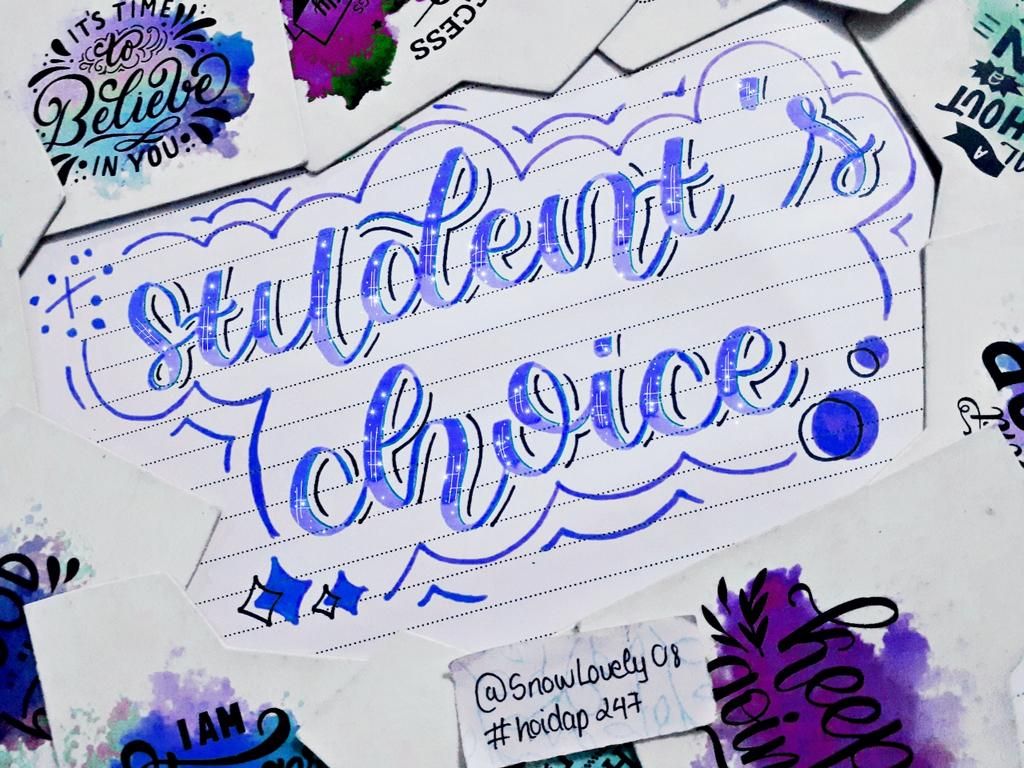 IT'S TIME
to
Believe
IN YOU
CESS
student's
choice
@SnowLovely08
#hoidap247
I AM
keep